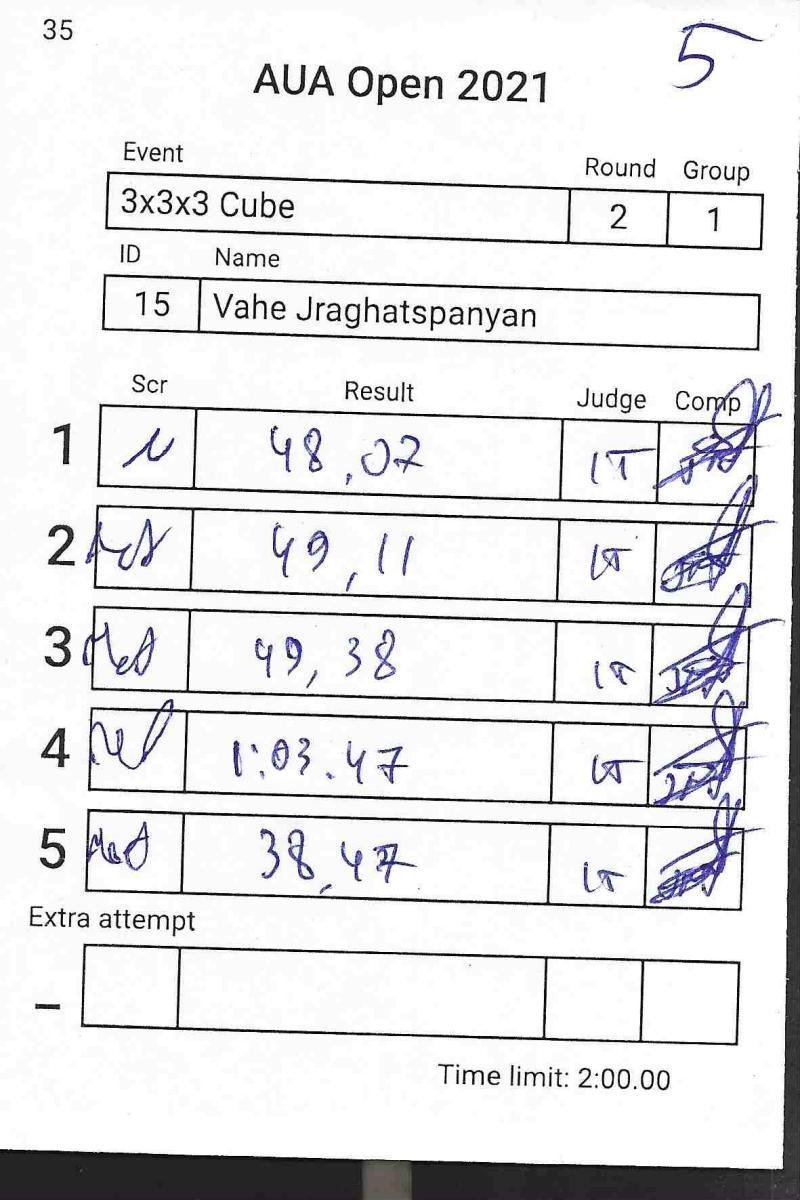 35
5
AUA Open 2021
Event Round Group
3x3x3 Cube 2 1
ID Name
15 Vahe Jraghatspanyan
Scr Result Judge Comp
1 48,07 IT
2 49,11 IT
3 49,38 IT
4 1:03.47 IT
5 38,47 IT
Extra attempt
–
Time limit: 2:00.00